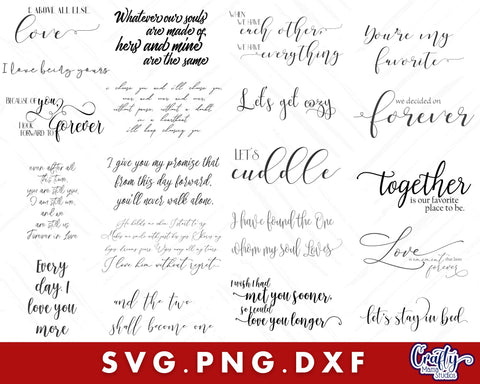 & ABOVE ALL ELSE
love
I love being yours
BECAUSE OF you,
I LOOK
FORWARD TO forever
even after all
this time,
you are still you,
I am still me,
and we
are still us
Forever in Love
Every
day, I
love you
more
Whatever our souls
are made of,
hers and mine
are the same
I choose you and I'll choose you
over and over and over.
without pause, without a doubt,
in a heartbeat
I'll keep choosing you
I give you my promise that
from this day forward,
you'll never walk alone.
I love him without regret
and the two
shall become one
WHEN
WE HAVE each other,
WE HAVE everything
Let's get cozy
LET'S
cuddle
I have found the One
whom my Soul Loves
I wish I had
met you sooner,
so I could
love you longer
You're my
favorite
we decided on
forever
together
is our favorite
place to be.
Love
forever
let's stay in bed
SVG.PNG.DXF
Crafty
Mama
Studios